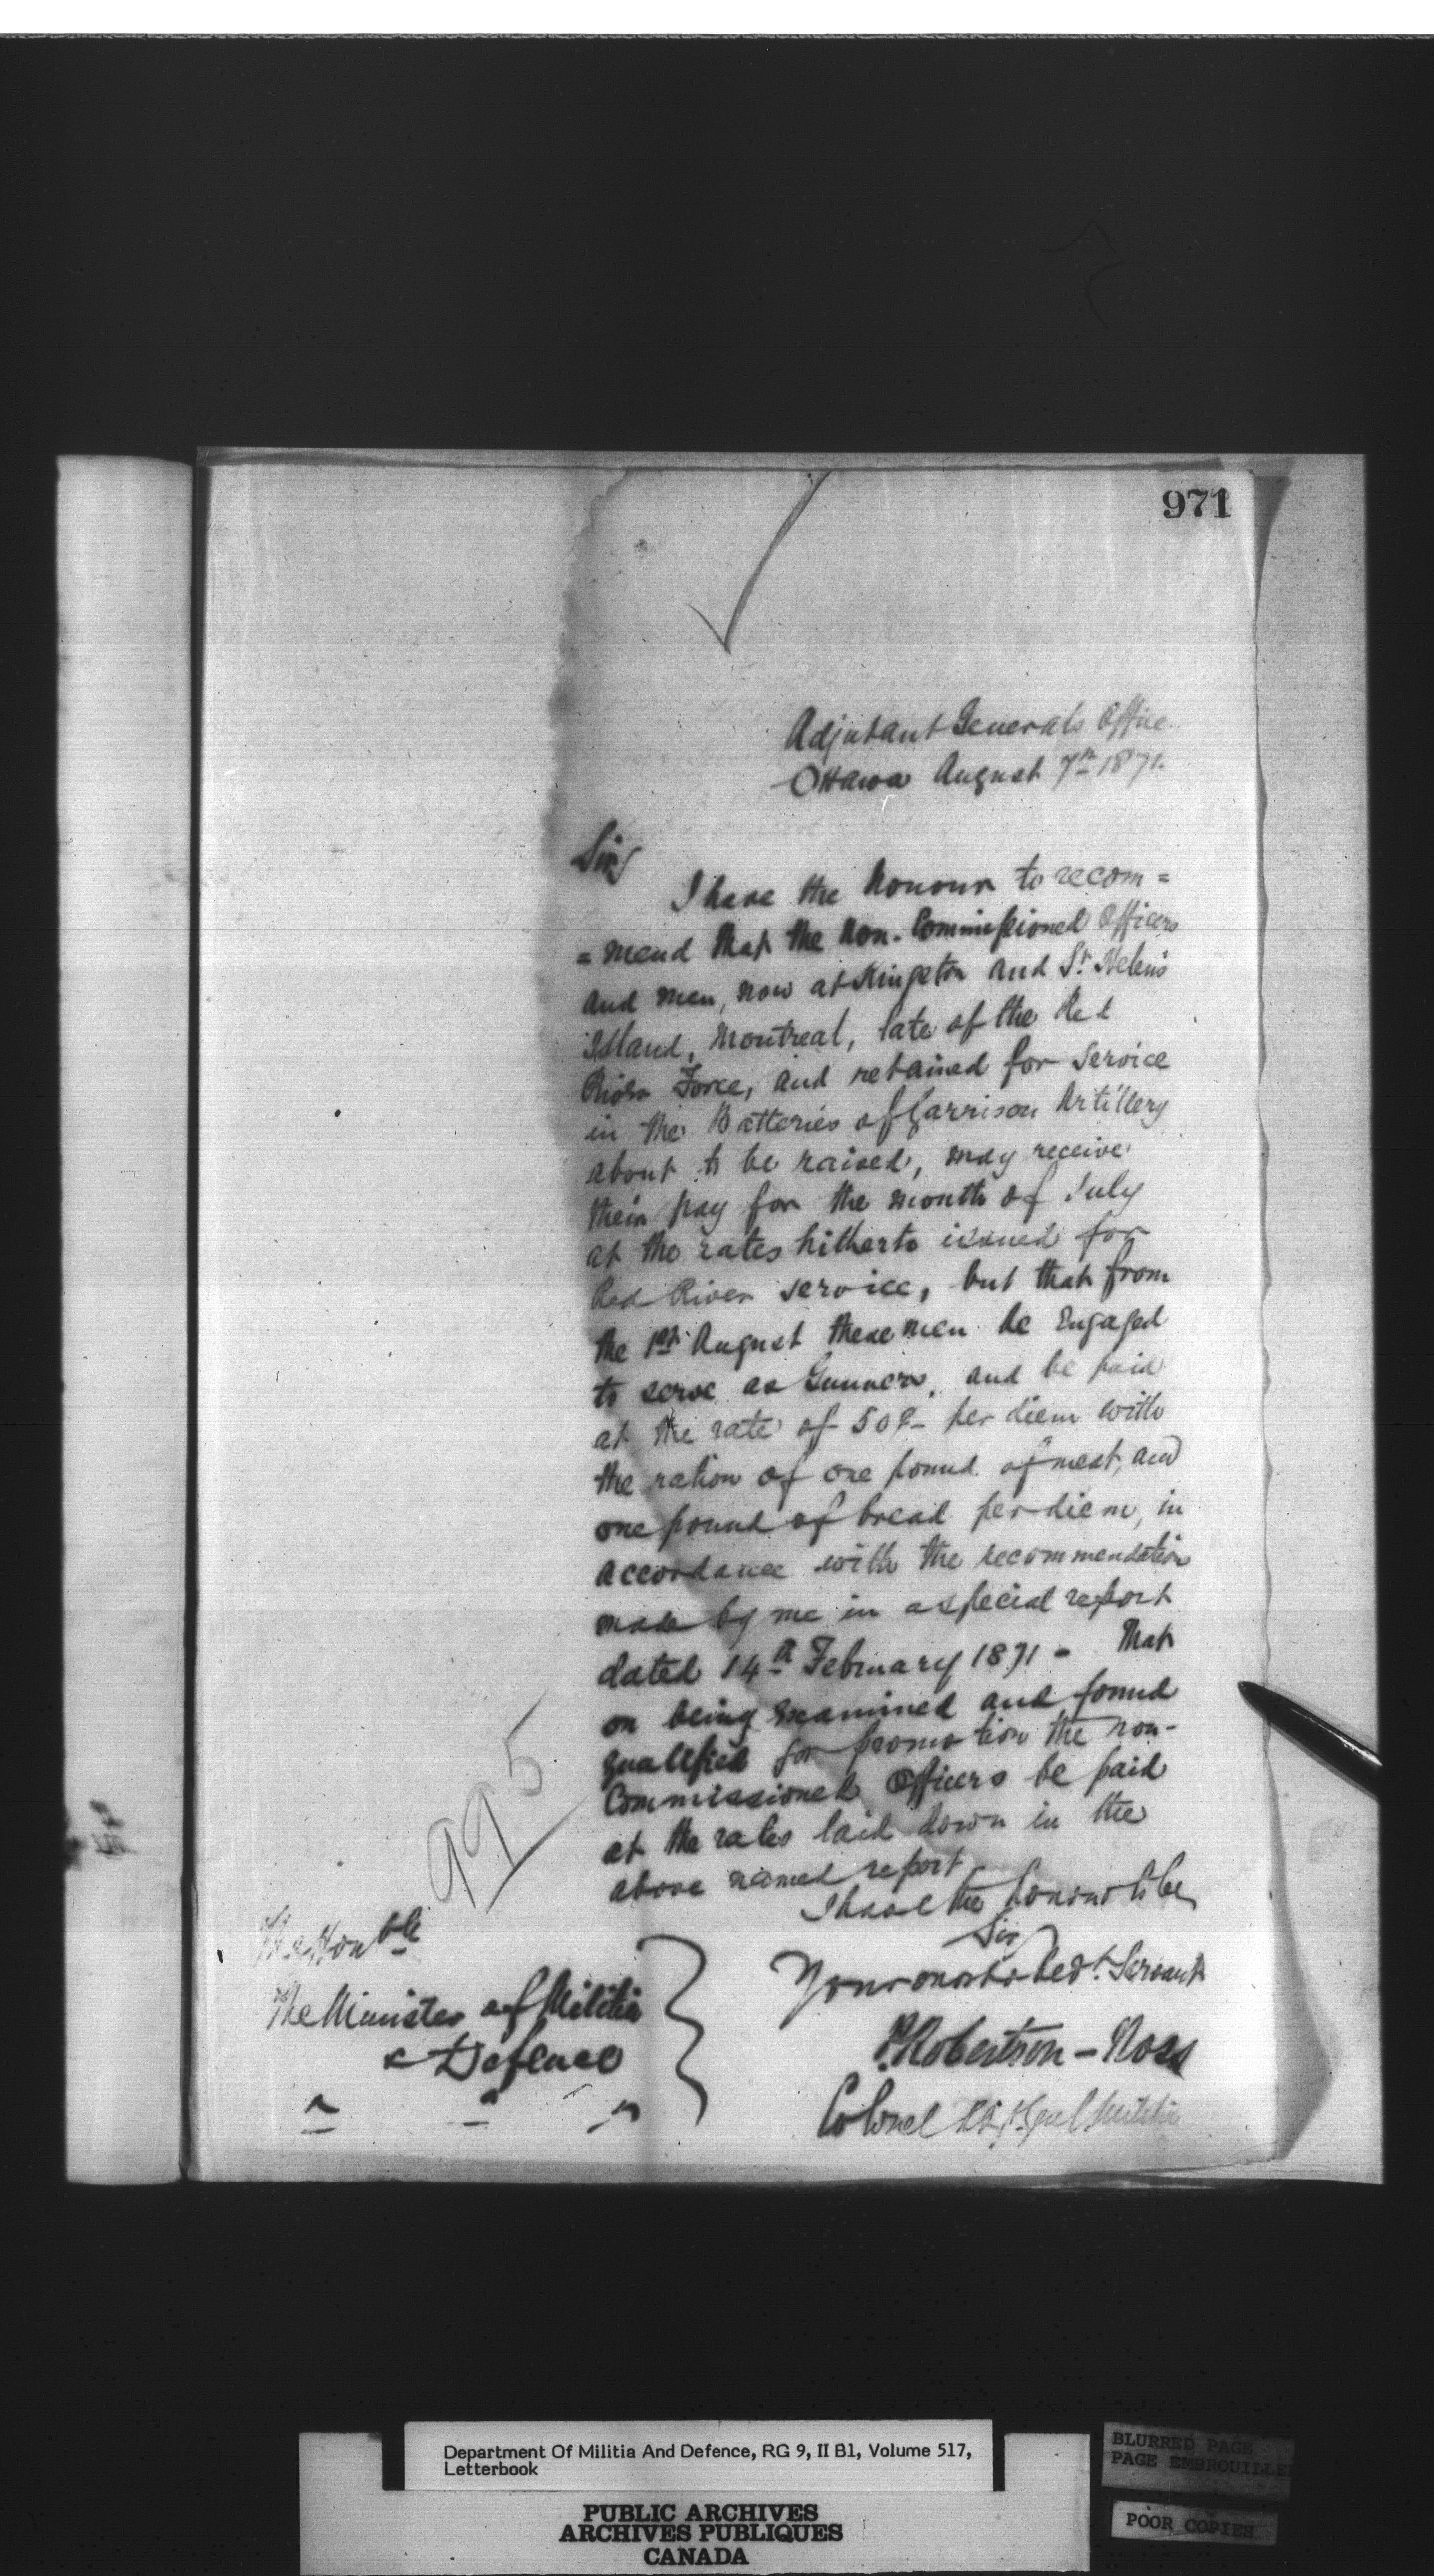 971
Adjutant Generals Office
Ottawa August 7th 1871.
Sir,
I have the honour to recom=
=mend that the Non-Commissioned Officers
and men, now at Kingston and St. Helen's
Island, Montreal, late of the Red
River Force, and retained for service
in the Batteries of Garrison Artillery
about to be raised, may receive
their pay for the month of July
at the rates hitherto issued for
Red River service, but that from
the 1st August these men be Engaged
to serve as Gunners, and be paid
at the rate of 50c- per diem with
the ration of one pound of meat, and
one pound of bread per diem, in
accordance with the recommendation
made by me in a special report
dated 14th February 1871 - That
on being examined and found
qualified for promotion the non-
Commissioned Officers be paid
at the rates laid down in the
above named report
995
I have the honour to be
Sir
Your most obedt. Servant
P. Robertson-Ross
Colonel
The Honble
The Minister of Militia
& Defence
Department Of Militia And Defence, RG 9, II B1, Volume 517,
Letterbook
PUBLIC ARCHIVES
ARCHIVES PUBLIQUES
CANADA
BLURRED PAGE
PAGE EMBROUILLE
POOR COPIES